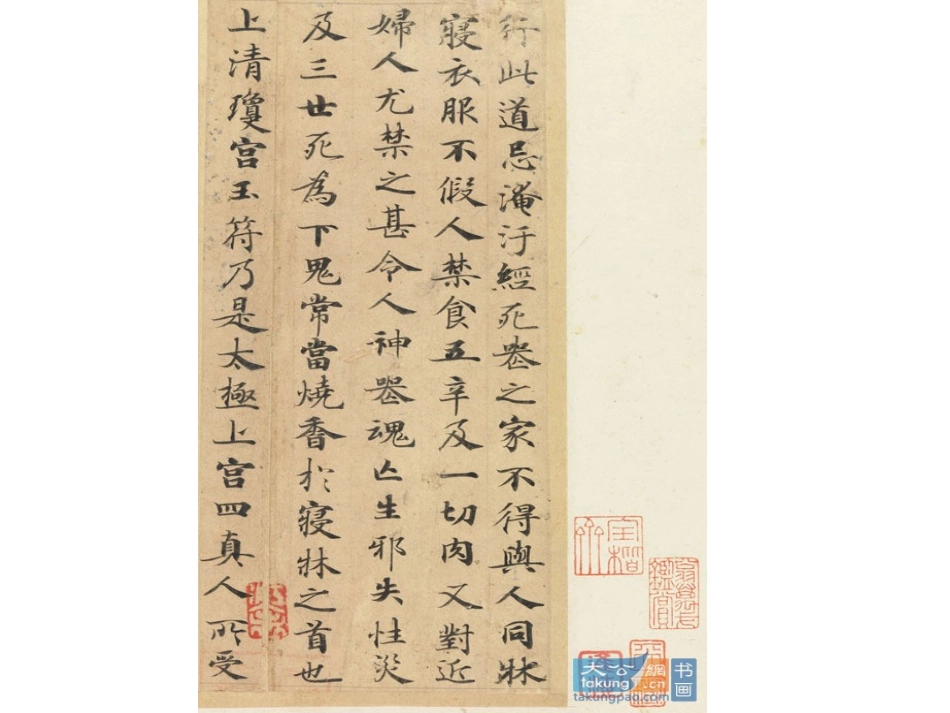 行此道忌淹汙經死喪之家不得與人同牀
寢衣服不假人禁食五辛及一切肉又對近
婦人尤禁之甚令人神喪魂亡生邪失性災
及三世死為下鬼常當燒香於寢牀之首也
上清瓊宮玉符乃是太極上宮四真人所受
大公網
takung.cn
书画
takungpao.com